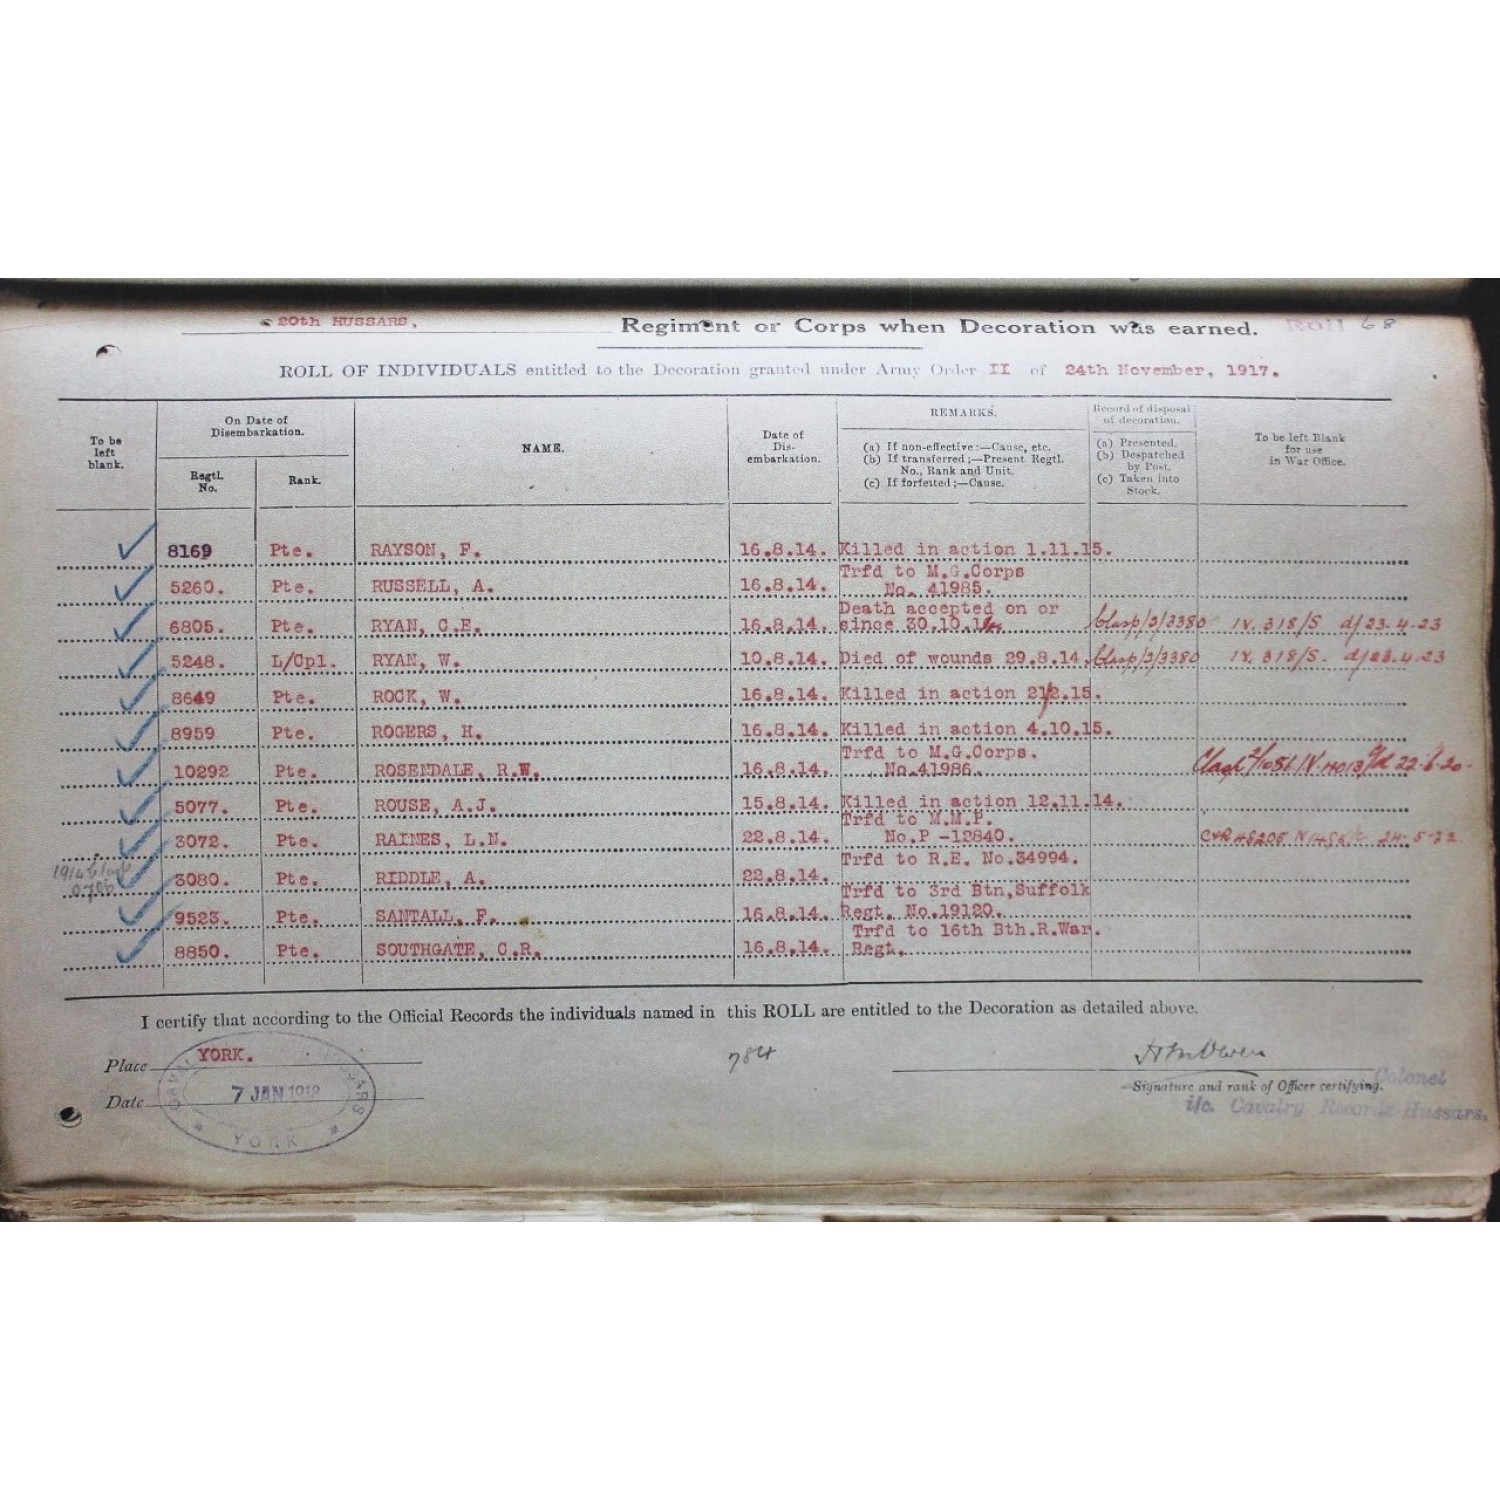 20th HUSSARS, Regiment or Corps when Decoration was earned. Roll 68
ROLL OF INDIVIDUALS entitled to the Decoration granted under Army Order II of 24th November, 1917.
To be left blank.
On Date of Disembarkation.
Regtl. No.
Rank.
NAME.
Date of Dis-embarkation.
REMARKS.
(a) If non-effective:—Cause, etc.
(b) If transferred;—Present Regtl. No., Rank and Unit.
(c) If forfeited;—Cause.
Record of disposal of decoration.
(a) Presented.
(b) Despatched by Post.
(c) Taken into Stock.
To be left Blank for use in War Office.
8169 Pte. RAYSON, F. 16.8.14. Killed in action 1.11.15.
5260. Pte. RUSSELL, A. 16.8.14. Trfd to M.G.Corps No. 41985.
6805. Pte. RYAN, C.E. 16.8.14. Death accepted on or since 30.10.14. Clasp/2/3380 IV. 318/S d/23.4.23
5248. L/Cpl. RYAN, W. 10.8.14. Died of wounds 29.8.14. Clasp/2/3380 IV. 318/S. d/23.4.23
8649 Pte. ROCK, W. 16.8.14. Killed in action 2/2.15.
8959 Pte. ROGERS, H. 16.8.14. Killed in action 4.10.15.
10292 Pte. ROSENDALE, R.W. 16.8.14. Trfd to M.G.Corps. No.41986. Clasp
5077. Pte. ROUSE, A.J. 15.8.14. Killed in action 12.11.14.
3072. Pte. RAINES, L.N. 22.8.14. Trfd to M.M.P. No.P -12840. 24.5.22
1914 Clasp
3080. Pte. RIDDLE, A. 22.8.14. Trfd to R.E. No.34994.
9523. Pte. SANTALL, F. 16.8.14. Trfd to 3rd Btn,Suffolk Regt. No.19120.
8850. Pte. SOUTHGATE, C.R. 16.8.14. Trfd to 16th Bth.R.War. Regt.
I certify that according to the Official Records the individuals named in this ROLL are entitled to the Decoration as detailed above.
Place YORK. 784
Date 7 JAN 1918
YORK
Signature and rank of Officer certifying. Colonel
i/c. Cavalry Records Hussars,